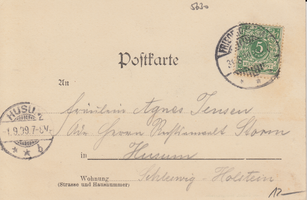 5630
Postkarte
5
An
Fräulein Agnes Jensen
Adr. Herrn Rechtsanwalt Storm
HUSUM
1.9.99.7-8V.
in Husum
Wohnung
(Strasse und Hausnummer)
Schleswig-Holstein